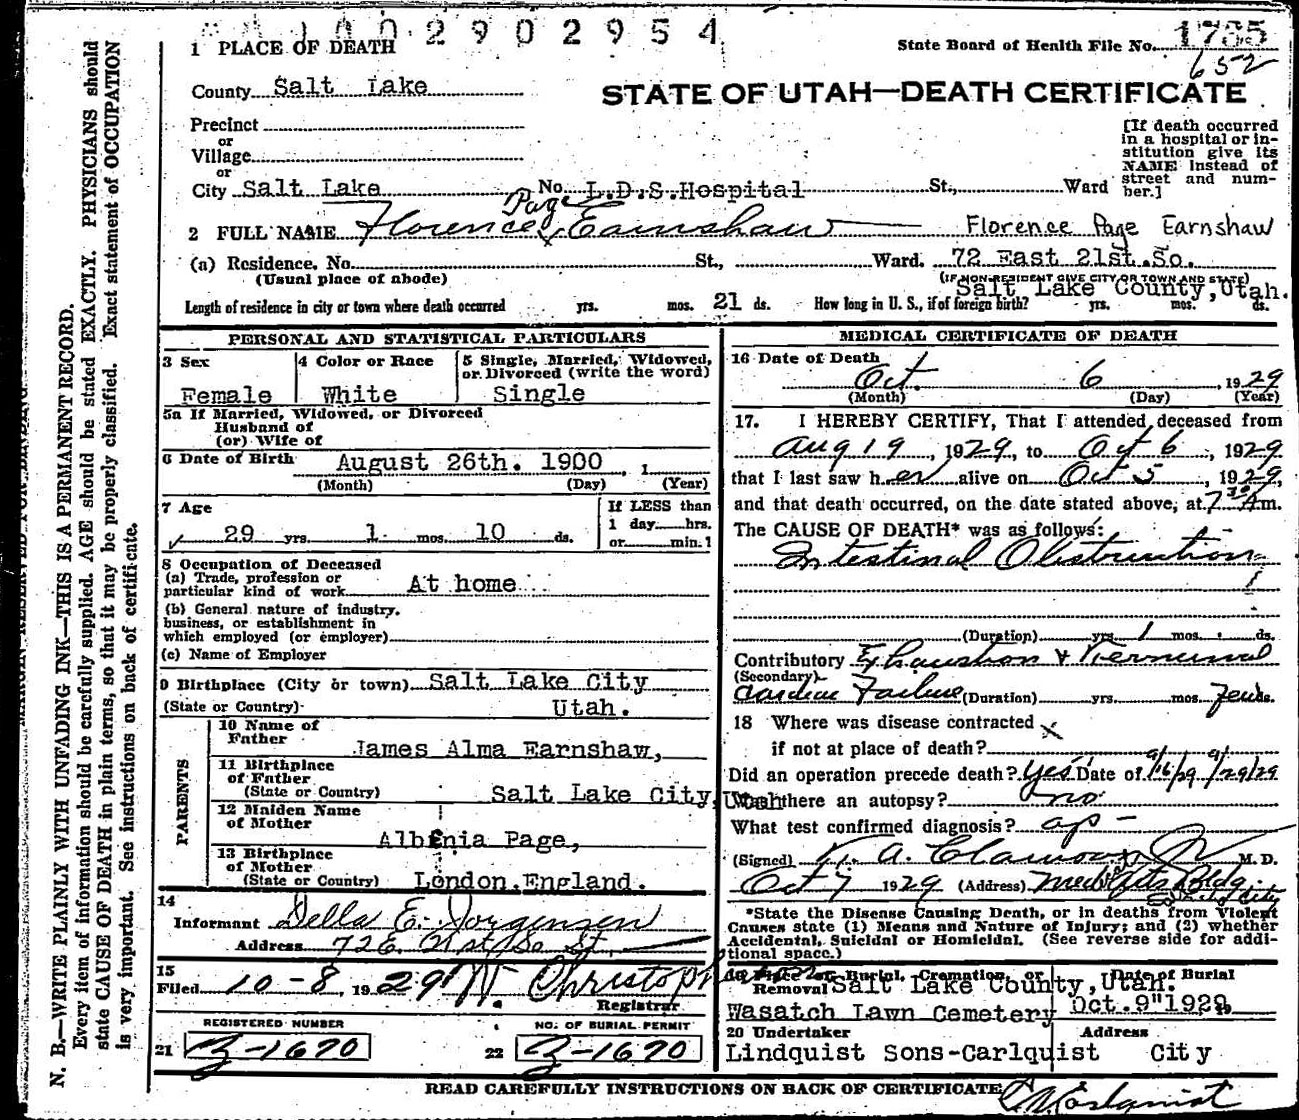 1002902954
1 PLACE OF DEATH
State Board of Health File No. 1735
652
County Salt Lake
STATE OF UTAH—DEATH CERTIFICATE
Precinct
or
Village
or
City Salt Lake No. L.D.S.Hospital St., Ward
[If death occurred
in a hospital or in-
stitution give its
NAME instead of
street and num-
ber.]
2 FULL NAME Florence Page Earnshaw Florence Page Earnshaw
(a) Residence. No. St., Ward. 72 East 21st.So.
(Usual place of abode) (IF NON-RESIDENT GIVE CITY OR TOWN AND STATE)
Salt Lake County,Utah.
Length of residence in city or town where death occurred yrs. mos. 21 ds. How long in U. S., if of foreign birth? yrs. mos. ds.
PERSONAL AND STATISTICAL PARTICULARS
3 Sex 4 Color or Race 5 Single, Married, Widowed,
or Divorced (write the word)
Female White Single
5a If Married, Widowed, or Divorced
Husband of
(or) Wife of
6 Date of Birth August 26th. 1900 , 1
(Month) (Day) (Year)
7 Age If LESS than
1 day hrs.
or min.?
29 yrs. 1 mos. 10 ds.
8 Occupation of Deceased
(a) Trade, profession or
particular kind of work At home
(b) General nature of industry,
business, or establishment in
which employed (or employer)
(c) Name of Employer
9 Birthplace (City or town) Salt Lake City
(State or Country) Utah.
PARENTS
10 Name of
Father James Alma Earnshaw,
11 Birthplace
of Father
(State or Country) Salt Lake City, Utah
12 Maiden Name
of Mother Albenia Page,
13 Birthplace
of Mother
(State or Country) London.England.
14
Informant Della E. Jorgensen
Address 72 E. 21st So St
15
Filed 10-8, 1929 Christoph
Registrar
REGISTERED NUMBER NO. OF BURIAL PERMIT
21 3-1670 22 3-1670
MEDICAL CERTIFICATE OF DEATH
16 Date of Death
Oct. 6 , 1929
(Month) (Day) (Year)
17. I HEREBY CERTIFY, That I attended deceased from
Aug 19, 1929, to Oct 6, 1929
that I last saw her alive on Oct 5, 1929,
and that death occurred, on the date stated above, at 7 30 A.m.
The CAUSE OF DEATH* was as follows:
Intestinal Obstruction
(Duration) yrs. 1 mos. ds.
Contributory Exhaustion & Terminal
(Secondary)
Cardiac Failure (Duration) yrs. mos. few ds.
18 Where was disease contracted
if not at place of death?
Did an operation precede death? Yes Date of 9/16/29 9/29/29
Was there an autopsy? no
What test confirmed diagnosis? op -
(Signed) M. D.
Oct 7 1929 (Address) Medical Arts Bldg.
*State the Disease Causing Death, or in deaths from Violent
Causes state (1) Means and Nature of Injury; and (2) whether
Accidental, Suicidal or Homicidal. (See reverse side for addi-
tional space.)
19 Place of Burial, Cremation, or Date of Burial
Removal Salt Lake County,Utah.
Wasatch Lawn Cemetery Oct.9"1929
20 Undertaker Address
Lindquist Sons-Carlquist City
READ CAREFULLY INSTRUCTIONS ON BACK OF CERTIFICATE
MARGIN RESERVED FOR BINDING
N. B.—WRITE PLAINLY WITH UNFADING INK—THIS IS A PERMANENT RECORD.
Every item of information should be carefully supplied. AGE should be stated EXACTLY. PHYSICIANS should
state CAUSE OF DEATH in plain terms, so that it may be properly classified. Exact statement of OCCUPATION
is very important. See instructions on back of certificate.